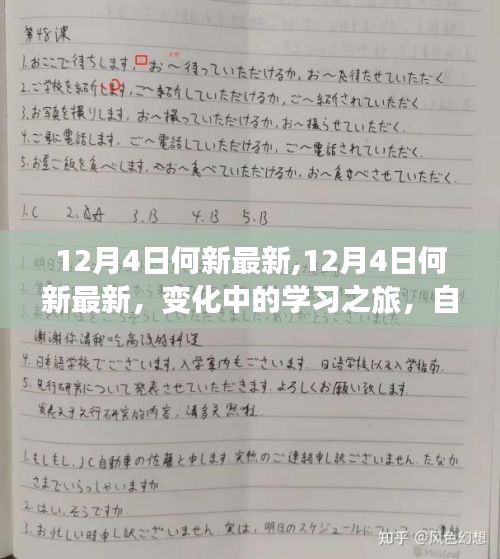 第48课
1.おここで待ちします,お～待っていただけるか,お～を待たせていただく
2.ご学校を紹介します,ご～紹介していただけるか,ご～紹介されていただく
3.お写真を撮りします,お～撮っていただけるか,お～撮らせていただく.
4.ご県に電話します,ご～電話していただけるか,ご～電話されていただく.
5.お昼ご飯を食べします,お～食べていただけるか,お～食べさせていただく.
1.C 2.A 3.B 4.B 5.B
12月4日何新最新,12月4日何
新最新，变化中的学习之旅，自
谢谢你请我吃高级的料理
4.日本語学校でございます,入学案内もございます. 日语学校以及入学指南.
5.先行研究について発表させていただきます.よろしくお願い致します.
发表关于先行研究的内容,请多关照啦.
1.もしもし,JC自動車の佐藤と申します.突然のご連絡申し訳ございません.たなか
さまでいらっしゃいますか
2.はい,そうですか
3.お忙しい時申し訳ございません.実は,明日のスケジュールについて
知乎 @风色幻想